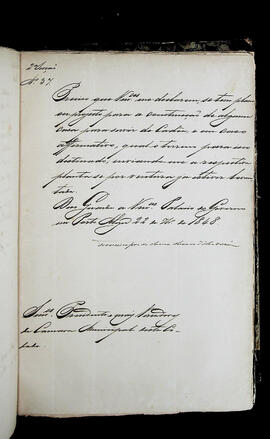 2ª Secção
Nº 37.
Preciso que Vmces me declarem, se tem plano
ou projecto para a construcção de alguma
Casa para servir de Cadêa, e em caso
affirmativo, qual o terreno para isso
destinado, enviando-me a respectiva
planta se por ventura ja estiver levan
tada.
Deos Guarde a Vmces Palacio do Governo
em Porto Alegre 22 de de 1848.
Senres Presidente e mais Vereadores
da Camara Municipal desta Ci-
dade.